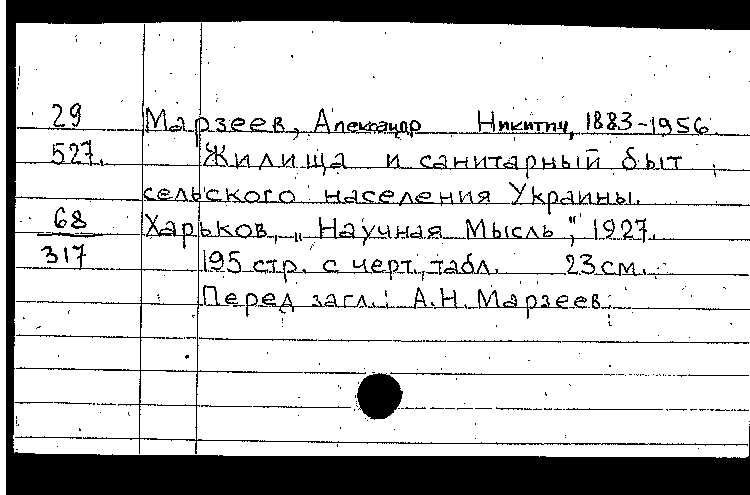 29 Марзеев, Александр Никитич, 1883-1956.
527. Жилища и санитарный быт
сельского населения Украины.
68 Харьков, „Научная Мысль", 1927.
317 195 стр. с черт., табл. 23 см.
Перед загл.: А.Н. Марзеев.